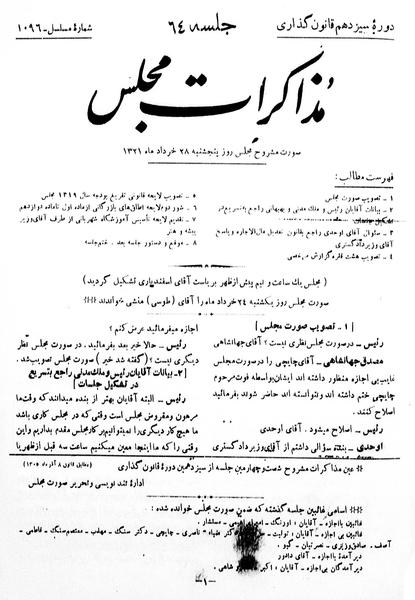 دورهٔ سیزدهم قانون گذاری
جلسه ۶۴
شمارهٔ مسلسل - ۱۰۹۶
مذاکرات مجلس
صورت مشروح مجلس روز پنجشنبه ۲۸ خرداد ماه ۱۳۲۱
فهرست مطالب:
۱ - تصویب صورت مجلس
۲ - بیانات آقایان رئیس و ملک مدنی و بهبهانی راجع به تسریع در
۳ - سئوال آقای اوحدی راجع بقانون تعدیل مال‌الاجاره و پاسخ آقای وزیر دادگستری
۴ - تصویب هشت فقره گزارش مرخصی
۵ - تصویب لایحه قانونی تفریغ بودجه سال ۱۳۱۹ مجلس
۶ - شور دوم لایحه اطاقهای بازرگانی از ماده اول تا ماده دوازدهم
۷ - تقدیم لایحه تأسیس آموزشگاه شهربانی از طرف آقای وزیر پیشه و هنر
۸ - موقع و دستور جلسه بعد. ختم جلسه
(مجلس یک ساعت و نیم پیش از ظهر بریاست آقای اسفندیاری تشکیل گردید)
صورت مجلس روز یکشنبه ۲۴ خرداد ماه را آقای (طوسی) منشی خواندند
[۱ - تصویب صورت مجلس]
رئیس - در صورت مجلس نظری نیست؟ آقای جهانشاهی
مصدق جهانشاهی - آقای چایچی را در صورت مجلس
غایب بی اجازه منظور داشته اند ایشان بواسطه فوت مرحوم
چایچی ختم داشته اند و نتوانسته اند حاضر شوند بفرمائید
اصلاح کنند.
رئیس - اصلاح میشود. آقای اوحدی
اوحدی - بنده سؤالی داشتم از آقای وزیر دادگستری
اجازه میفرمائید عرض کنم؟
رئیس - حالا خیر بعد بفرمائید. در صورت مجلس نظر
دیگری نیست؟ (گفته شد خیر) صورت مجلس تصویب شد.
[۲ - بیانات آقایان رئیس و ملک مدنی راجع بتسریع
در تشکیل جلسات]
رئیس - البته آقایان بهتر از بنده میدانند که وقت ما
مرهون و مقروض مجلس است وقتی که در مجلس کاری باشد
ما هیچ کار دیگری را نمیتوانیم بر کار مجلس مقدم بداریم و این
وقتی را که ما اینجا معین میکنیم ساعت سه قبل از ظهر یا
عین مذاکرات مشروح شصت و چهارمین جلسه از سیزدهمین دوره قانون گذاری
(مطابق قانون ۸ آذر ماه ۱۳۰۵)
اداره تند نویسی و تحریر صورت مجلس
اسامی غائبین جلسه گذشته که ضمن صورت مجلس خوانده شده:
غائبین با اجازه - آقایان: اورنگ - امیر ابراهیمی - مستشار.
غائبین بی اجازه - آقایان: تولیت - ناصری - چایچی - دکتر سنگ - مهذب - معتصم سنگ - فاطمی -
آصف - صادق وزیری - نصرتیان - گیو.
دیر آمدهٔ با اجازه - آقای دادور
دیر آمدگان بی اجازه - آقایان: اکبر شاهی.
- ۱ -